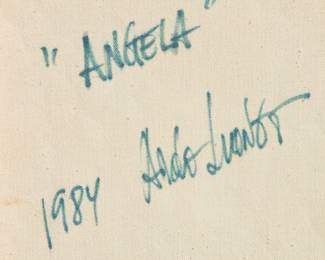 " ANGELA "
1984 Aldo Luongo